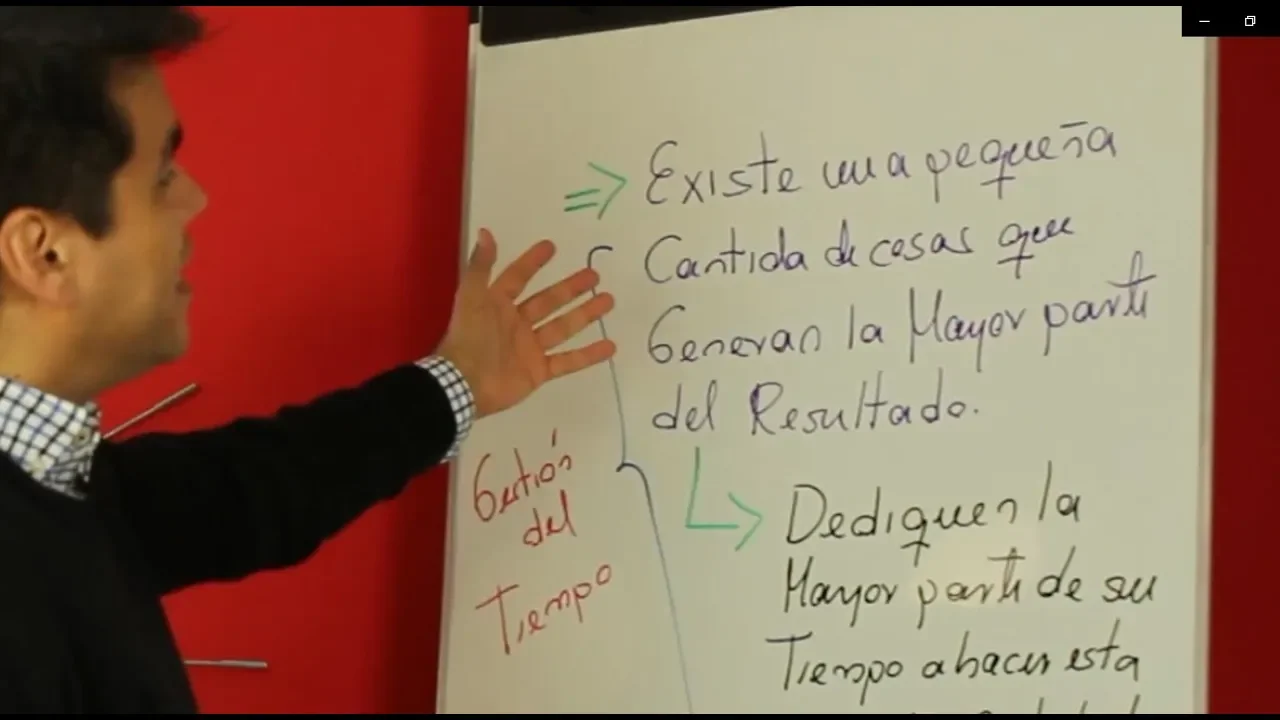 Gestión
del
Tiempo
=> Existe una pequeña
Cantida de cosas que
Generan la Mayor parte
del Resultado.
Dediquen la
Mayor parte de su
Tiempo a hacer esta